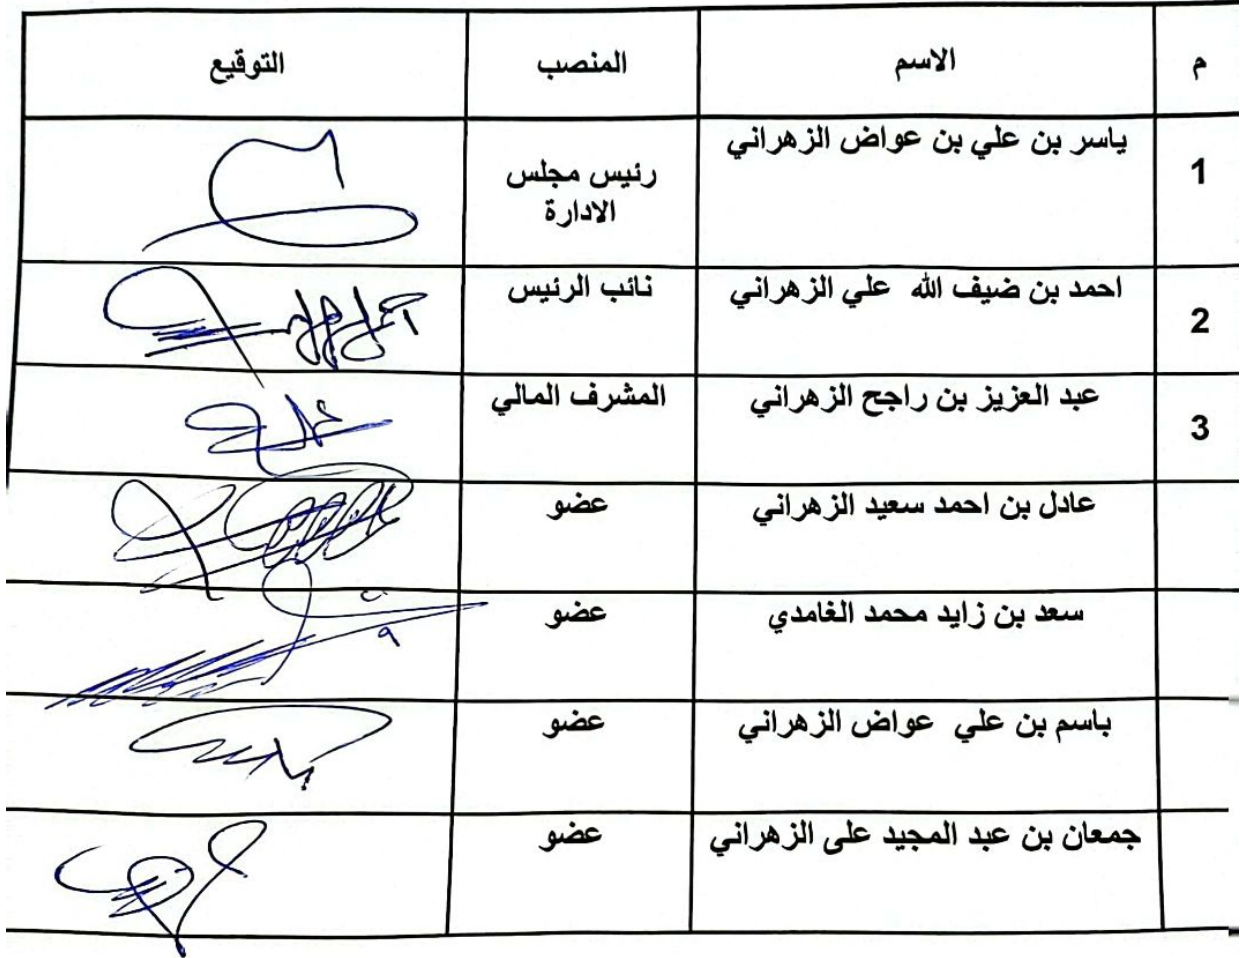 م الاسم المنصب التوقيع
1 ياسر بن علي بن عواض الزهراني رئيس مجلس
الادارة
2 احمد بن ضيف الله علي الزهراني نائب الرئيس
3 عبد العزيز بن راجح الزهراني المشرف المالي
عادل بن احمد سعيد الزهراني عضو
سعد بن زايد محمد الغامدي عضو
باسم بن علي عواض الزهراني عضو
جمعان بن عبد المجيد على الزهراني عضو